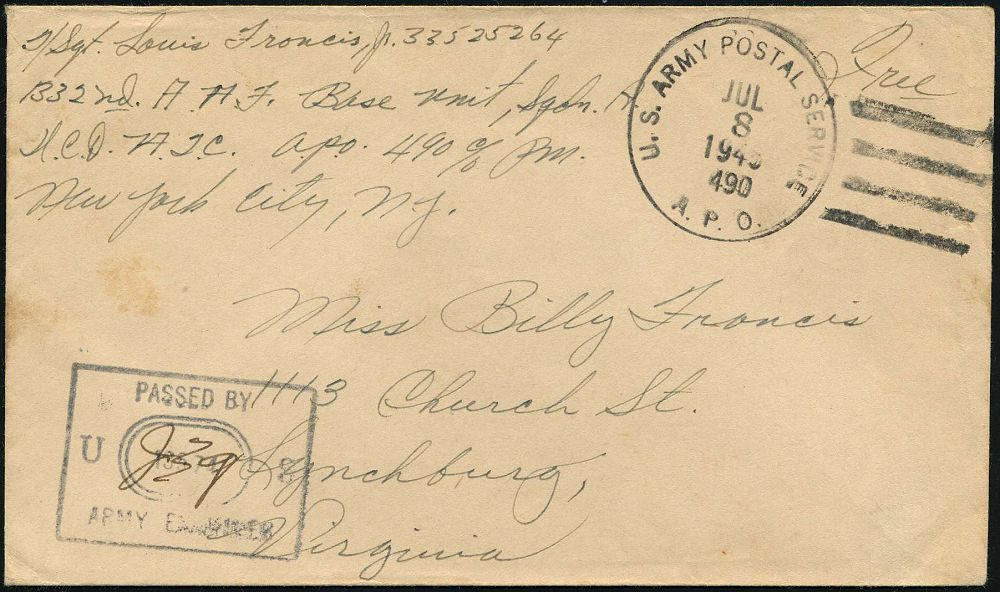 T/Sgt. Louis Francis, Jr. 33525264
1332nd. A A F. Base unit, Sqdn. A
N.C.D. A.T.C. apo. 490 c/o P.M.
New York City, N.Y.
Free
U. S. ARMY POSTAL SERVICE
JUL
8
1945
490
A. P. O.
Miss Billy Francis
1113 Church St.
Lynchburg,
Virginia
PASSED BY
U S
ARMY EXAMINER